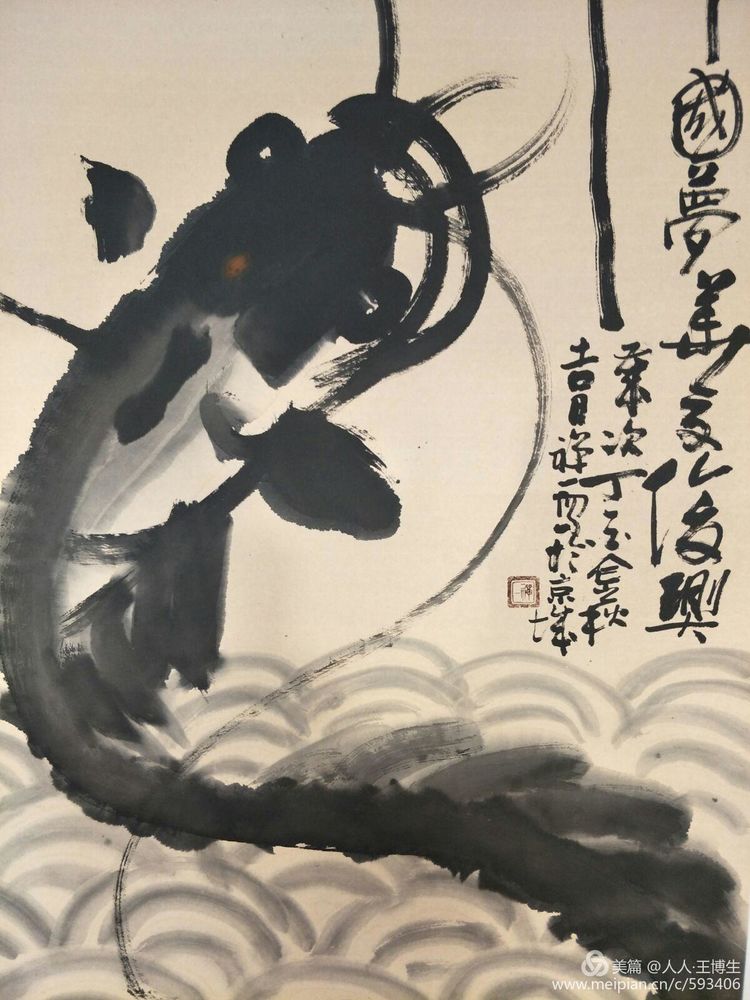 國夢華文復興
歲次丁酉金秋
吉日禪一畫於京城
美篇 @人人·王博生
www.meipian.cn/c/593406